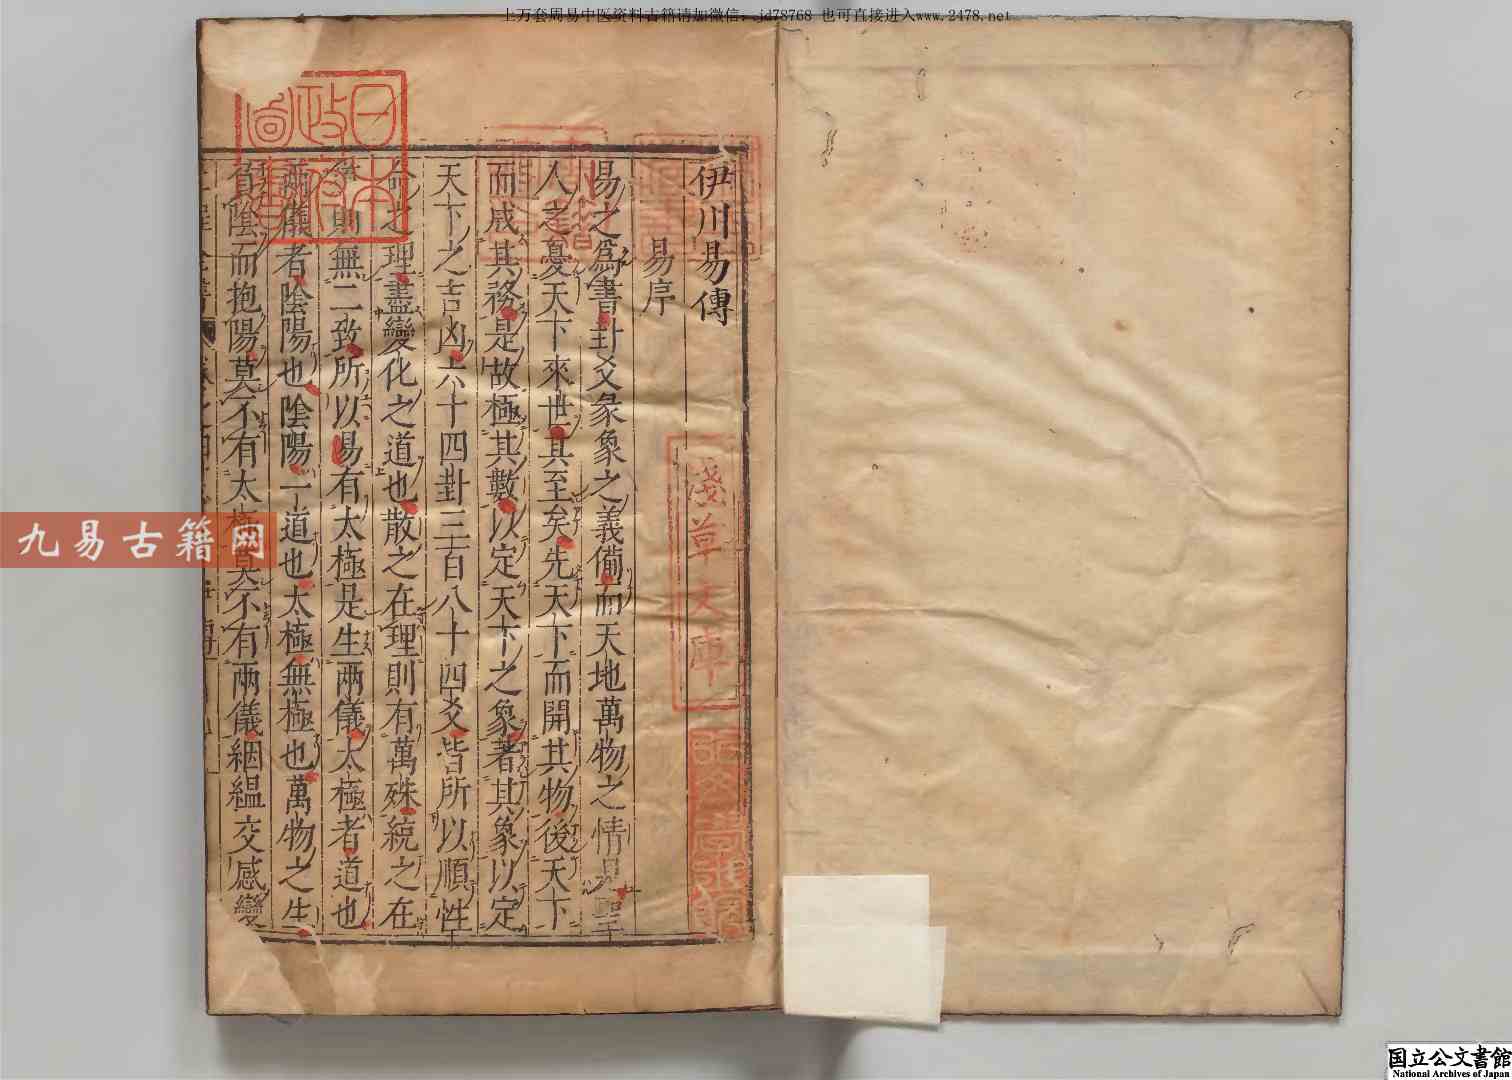 上万套周易中医资料古籍请加微信：jd78768 也可直接进入www.2478.net
伊川易傳
易序
易之爲書卦爻彖象之義備而天地萬物之情見聖
人之憂天下來世其至矣先天下而開其物後天下
而成其務是故極其數以定天下之象著其象以定
天下之吉凶六十四卦三百八十四爻皆所以順性
命之理盡變化之道也散之在理則有萬殊統之在
道則無二致所以易有太極是生兩儀太極者道也
兩儀者陰陽也陰陽一道也太極無極也萬物之生
負陰而抱陽莫不有太極莫不有兩儀絪縕交感變
日本
政府
圖書
淺草文庫
九易古籍网
国立公文書館
National Archives of Japan